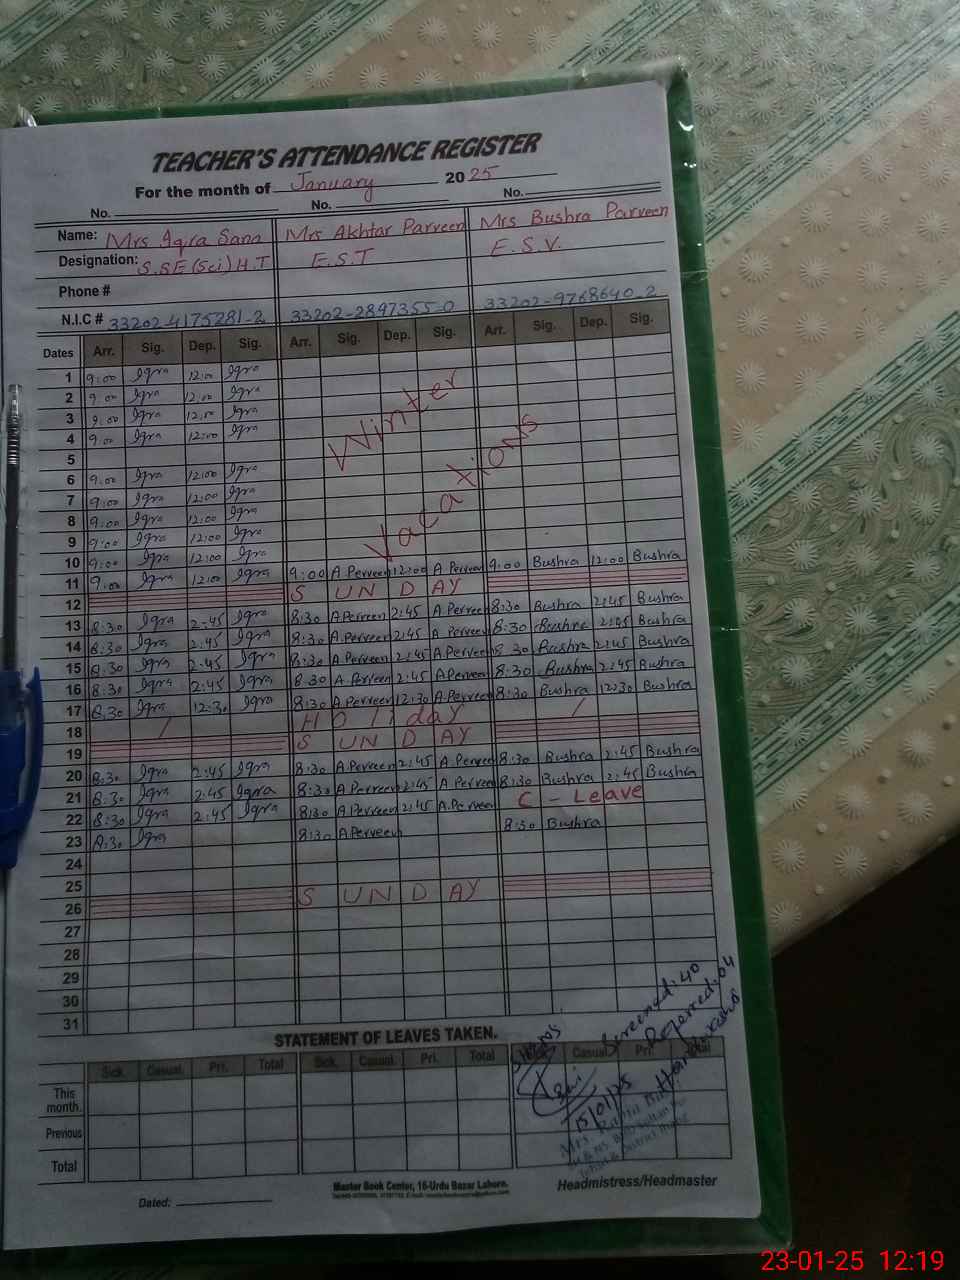 TEACHER'S ATTENDANCE REGISTER
For the month of January 2025
No. No. No.
Name: Mrs Iqra Sana Mrs Akhtar Parveen Mrs Bushra Parveen
Designation: S.SE (Sci) H.T E.S.T E.S.V.
Phone #
N.I.C # 33202-4175281-2 33202-2897355-0 33202-9768640-2
Dates Arr. Sig. Dep. Sig. Arr. Sig. Dep. Sig. Arr. Sig. Dep. Sig.
1 9:00 Iqra 12:00 Iqra
2 9:00 Iqra 12:00 Iqra
3 9:00 Iqra 12:00 Iqra
4 9:00 Iqra 12:00 Iqra
Winter
5
6 9:00 Iqra 12:00 Iqra
7 9:00 Iqra 12:00 Iqra
8 9:00 Iqra 12:00 Iqra
Vacations
9 9:00 Iqra 12:00 Iqra
10 9:00 Iqra 12:00 Iqra
11 9:00 Iqra 12:00 Iqra 9:00 A.Perveen 12:00 A.Perveen 9:00 Bushra 12:00 Bushra
12 SUNDAY
13 8:30 Iqra 2:45 Iqra 8:30 A.Perveen 2:45 A.Perveen 8:30 Bushra 2:45 Bushra
14 8:30 Iqra 2:45 Iqra 8:30 A.Perveen 2:45 A.Perveen 8:30 Bushra 2:45 Bushra
15 8:30 Iqra 2:45 Iqra 8:30 A.Perveen 2:45 A.Perveen 8:30 Bushra 2:45 Bushra
16 8:30 Iqra 2:45 Iqra 8:30 A.Perveen 2:45 A.Perveen 8:30 Bushra 2:45 Bushra
17 8:30 Iqra 12:30 Iqra 8:30 A.Perveen 12:30 A.Perveen 8:30 Bushra 12:30 Bushra
18 / Holiday /
19 SUNDAY
20 8:30 Iqra 2:45 Iqra 8:30 A.Perveen 2:45 A.Perveen 8:30 Bushra 2:45 Bushra
21 8:30 Iqra 2:45 Iqra 8:30 A.Perveen 2:45 A.Perveen 8:30 Bushra 2:45 Bushra
22 8:30 Iqra 2:45 Iqra 8:30 A.Perveen 2:45 A.Perveen C - Leave
23 8:30 Iqra 8:30 A.Perveen 8:30 Bushra
24
25
26 SUNDAY
27
28
29
30
31
Screened: 40
Referred: 04
STATEMENT OF LEAVES TAKEN.
Sick. Casual. Pri. Total Sick. Casual. Pri. Total Casual. Pri. Total
This month.
15/01/25
Previous
Total
Master Book Center, 16-Urdu Bazar Lahore.
Headmistress/Headmaster
Dated:
23-01-25 12:19